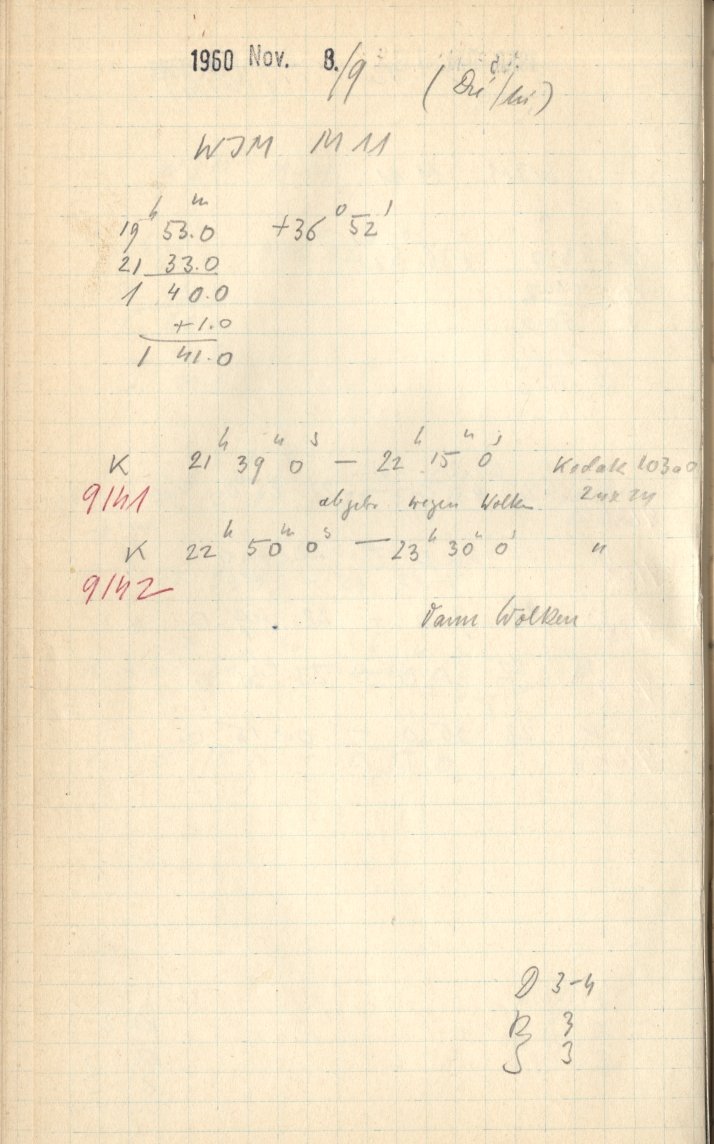 1960 Nov. 8./9 (Dü/Li)
WJM M 11
19ʰ 53.0ᵐ +36° 52'
21 33.0
1 40.0
+1.0
1 41.0
K 21ʰ 39ᵐ 0ˢ — 22ʰ 15ᵐ 0ˢ Kodak 103a0
9141 abgebr wegen Wolken 24x24
K 22ʰ 50ᵐ 0ˢ — 23ʰ 30ᵐ 0ˢ "
9142
Dann Wolken
D 3-4
R 3
S 3